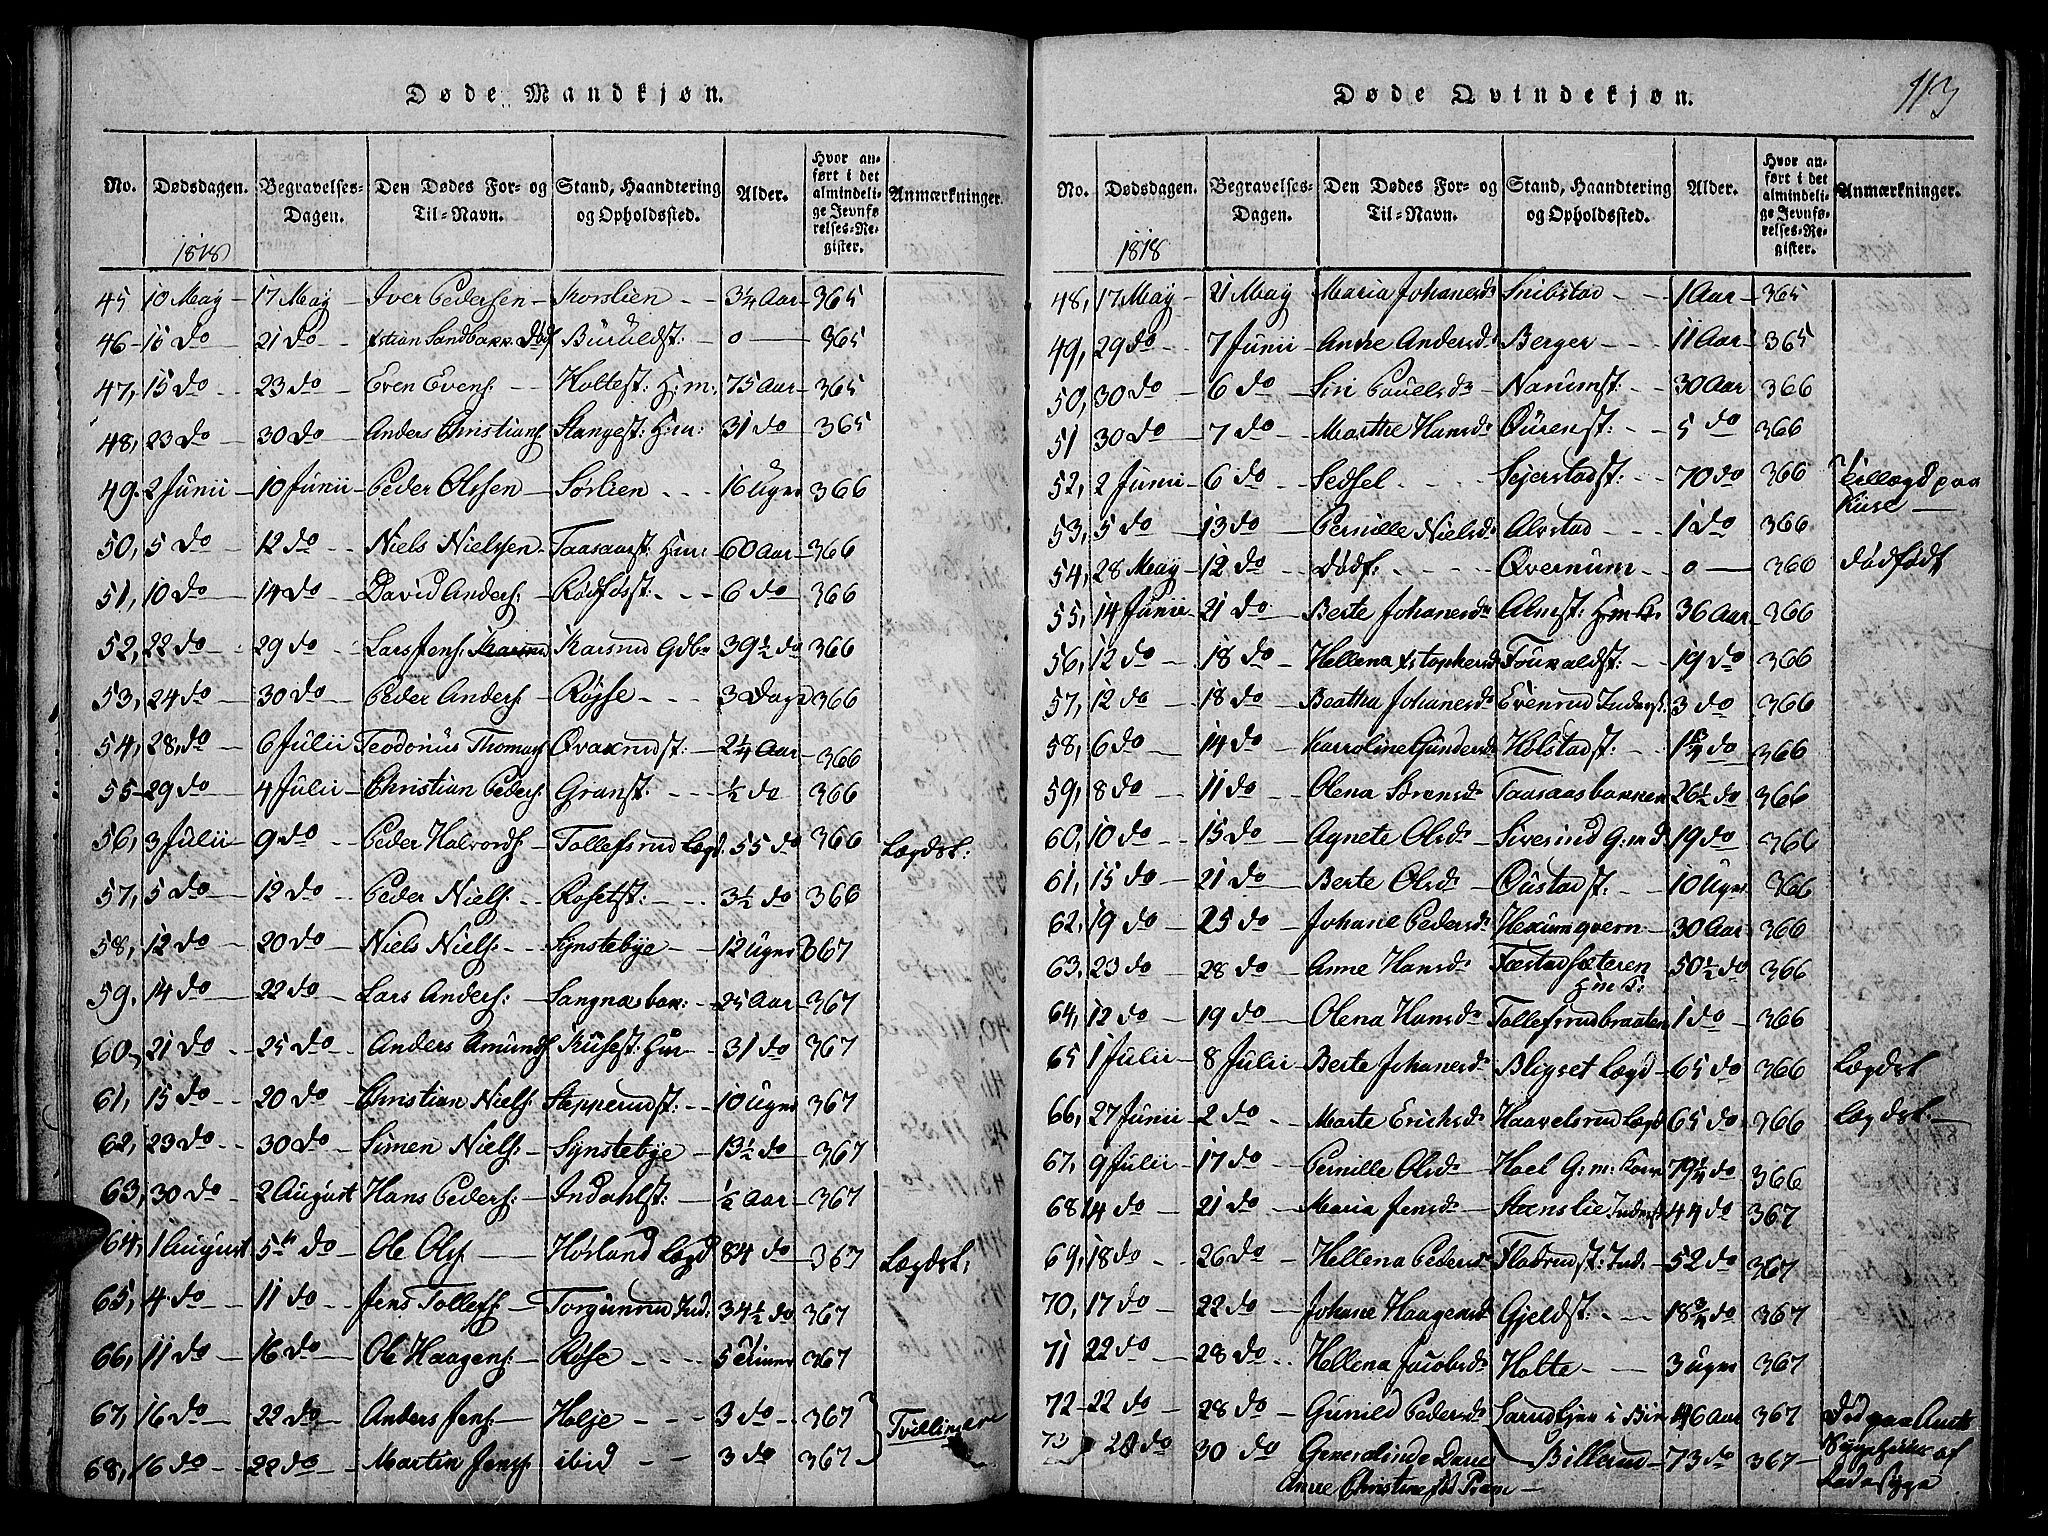 Døde Mandkjøn.
No. Dødsdagen. Begravelses-Dagen. Den Dødes For- og Til-Navn. Stand, Haandtering og Opholdssted. Alder. Hvor anført i det almindelige Jevnførelses-Register. Anmærkninger.
1818
45 10 May 17 May Iver Pedersen Korslien 3¼ Aar 365
46 16 do 21 do Døf 0 365
47, 15 do 23 do Even Evens: Holtest: H:m: 75 Aar 365
48, 23 do 30 do Anders Christians: Stangest: H:m: 31 do 365
49. 2 Junii 10 Junii Peder Olssen Sørlien 16 Uger 366
50, 5 do 12 do Niels Nielssen Taasaast: H:m: 60 Aar 366
51, 10 do 14 do David Anders: Rødfosst: 6 do 366
52, 22 do 29 do Lars Jens: Karsrud Gdb 39½ do 366
53, 24 do 30 do Peder Anders: Røgse 3 Dage 366
54, 28 do 6 Julii Teodorius Thomas: 2¼ Aar 366
55 29 do 4 Julii Christian Peders: Granst: ½ do 366
56, 3 Julii 9 do Peder Halvords: Tollefsrud Lægd 55 do 366 Lægdsl:
57, 5 do 12 do Peder Niels: Rosetst: 3½ do 366
58, 12 do 20 do Niels Niels: Synstebye 12 Uger 367
59. 14 do 22 do Lars Anders: Sangnæsbak: 25 Aar 367
60, 21 do 25 do Anders Amunds: Kusest: H:m 31 do 367
61, 15 do 20 do Christian Niels: Stepperudst: 10 Uger 367
62, 23 do 30 do Simen Niels: Synstebye 13½ do 367
63, 30 do 2 August Hans Peders: Indahlst: ½ Aar 367
64, 1 August 5te do Ole Ols: Hørland Lægd 84 do 367 Lægdsl:
65, 4 do 11 do Jens Tollefs: Torgunrud Ind: 34½ do 367
66, 11 do 16 do Ole Haagens: Røse 5 Timer 367
67, 16 do 22 do Anders Jens: Holje 3 do 367
Tvillinger
68, 16 do 22 do Martin Jens: ibid 3 do 367
Døde Qvindekjøn.
113
No. Dødsdagen. Begravelses-Dagen. Den Dødes For- og Til-Navn. Stand, Haandtering og Opholdssted. Alder. Hvor anført i det almindelige Jevnførelses-Register. Anmærkninger.
1818
48, 17 May 21 May Maria Johanesd: Snibstad 1 Aar 365
49, 29 do 7 Junii Anne Andersd: Berger 11 Aar 365
50, 30 do 6 do Siri Pouelsd: Narumst: 30 Aar 366
51 30 do 7 do Marthe Hansd: Ourenst: 5 do 366
52, 2 Junii 6 do Sedsel Sejerstadst: 70 do 366 Tillægd paa
Kuse
53, 5 do 13 do Pernille Nielsd: Alvstad 1 do 366
54, 28 May 12 do Dødf: Overnum 0 366 dødfødt
55, 14 Junii 21 do Berte Johanesd: Almst: H:m K: 36 Aar 366
56, 12 do 18 do Hellena Xstophersd: 19 do 366
57, 12 do 18 do Beatha Johanesd: Evenrud Inderst: 3 do 366
58, 6 do 14 do Karroline Gundersd: Holstadst: 1¼ do 366
59, 8 do 11 do Olena Sørensd: Taasaasbakken 26½ do 366
60, 10 do 15 do Agnete Olsd: Siverud G:m d: 19 do 366
61, 15 do 21 do Berte Olsd: Oustadst: 10 Uger 366
62, 19 do 25 do Johane Pedersd: Hexumqvern 30 Aar 366
63, 23 do 28 do Anne Hansd: Fæstadsæteren 50½ do 366
H:m K:
64, 12 do 19 do Olena Hansd: Tollefsrudbraaten 1 do 366
65 1 Julii 8 Julii Berte Johanesd: Bligset Lægd 65 do 366 Lægdsl
66, 27 Junii 2 do Marte Erichsd: Haavelsrud Lægd 65 do 366 Lægdsl
67, 9 Julii 17 do Pernille Olsd: Hoel G:m: Kone 79¼ do 366
68 14 do 21 do Maria Jensd: Steenslie Inderst 44 do 367
69, 18 do 26 do Hellena Pedersd: Fladrudst: Ind: 52 do 367
70, 17 do 22 do Johane Haagensd: Gjeldst: 18¾ do 367
71 22 do 28 do Hellena Jacobsd: Holte 3 Uger 367
72 22 do 28 do Gunild Pedersd: 46 Aar 367 Død paa Amts
73 28 do 30 do Generalinde Billerud 73 do 367 Sygehuset af
Anne Christine